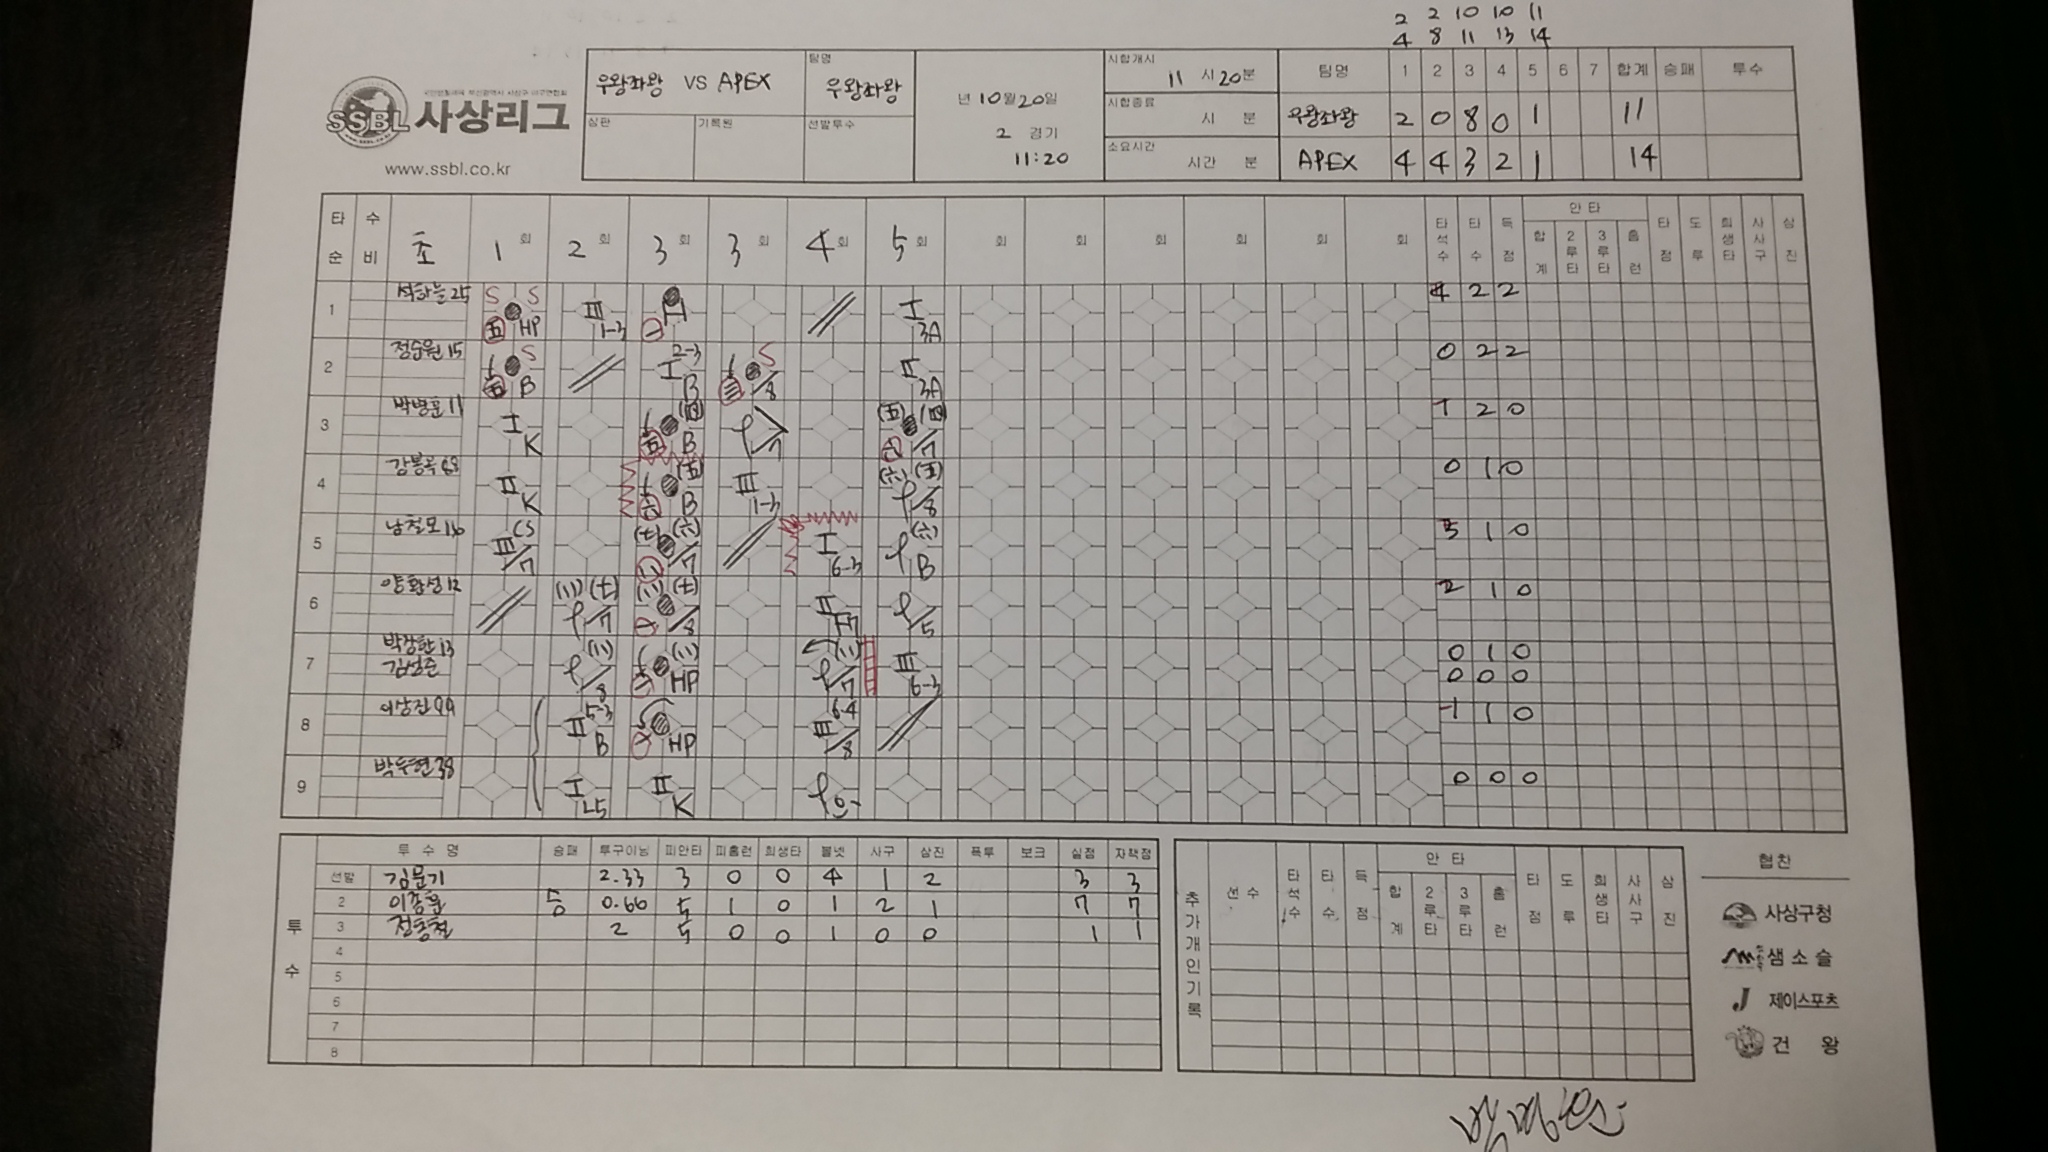 2 2 10 10 11
4 8 11 13 14
SSBL 사상리그
www.ssbl.co.kr
우왕좌왕 VS APEX
팀명
우왕좌왕
심판
기록원
선발투수
년 10월 20일
2 경기
11:20
시합개시
11 시 20분
시합종료
시 분
소요시간
시간 분
팀명 1 2 3 4 5 6 7 합계 승패 투수
우왕좌왕 2 0 8 0 1 11
APEX 4 4 3 2 1 14
타순 수비 초 1회 2회 3회 3회 4회 5회 회 회 회 회 회 회 타석수 타수 득점 안타 합계 2루타 3루타 홈런 타점 도루 희생타 사사구 삼진
1 석하늘 25 S S HP III 1-3 I 3A 4 2 2
2 정승원 15 S B 2-3 I B S /8 II 3A 0 2 2
3 박병훈 11 I K B /7 /7 1 2 0
4 강봉욱 68 II K B III 1-3 /8 0 1 0
5 남철모 16 III CS /7 /7 I 6-3 B 3 1 0
6 양황성 12 /7 /8 II F7 /5 2 1 0
7 박장한 13 /8 HP /7 III 6-3 0 1 0
0 0 0
8 이상진 99 II 5-3 B HP III 6-4 /8 1 1 0
9 박두현 38 I L5 II K 0 0 0
투수
투수명 승패 투구이닝 피안타 피홈런 희생타 볼넷 사구 삼진 폭투 보크 실점 자책점
선발 김문기 2.33 3 0 0 4 1 2 3 3
2 이종훈 승 0.66 5 1 0 1 2 1 7 7
3 정종철 2 5 0 0 1 0 0 1 1
4
5
6
7
8
추가개인기록
선수 타석수 타수 득점 안타 합계 2루타 3루타 홈런 타점 도루 희생타 사사구 삼진
협찬
사상구청
샘소슬
J 제이스포츠
건왕